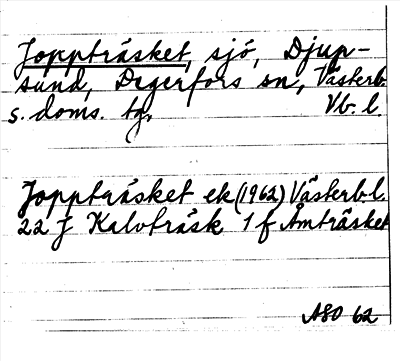 Joppträsket, sjö, Djup-
sund, Degerfors sn, Västerb.
s. doms. tg, Vb. l.
Joppträsket ek (1962) Västerb.l.
22 J Kalvträsk 1 f Åmträsket
ASO 62